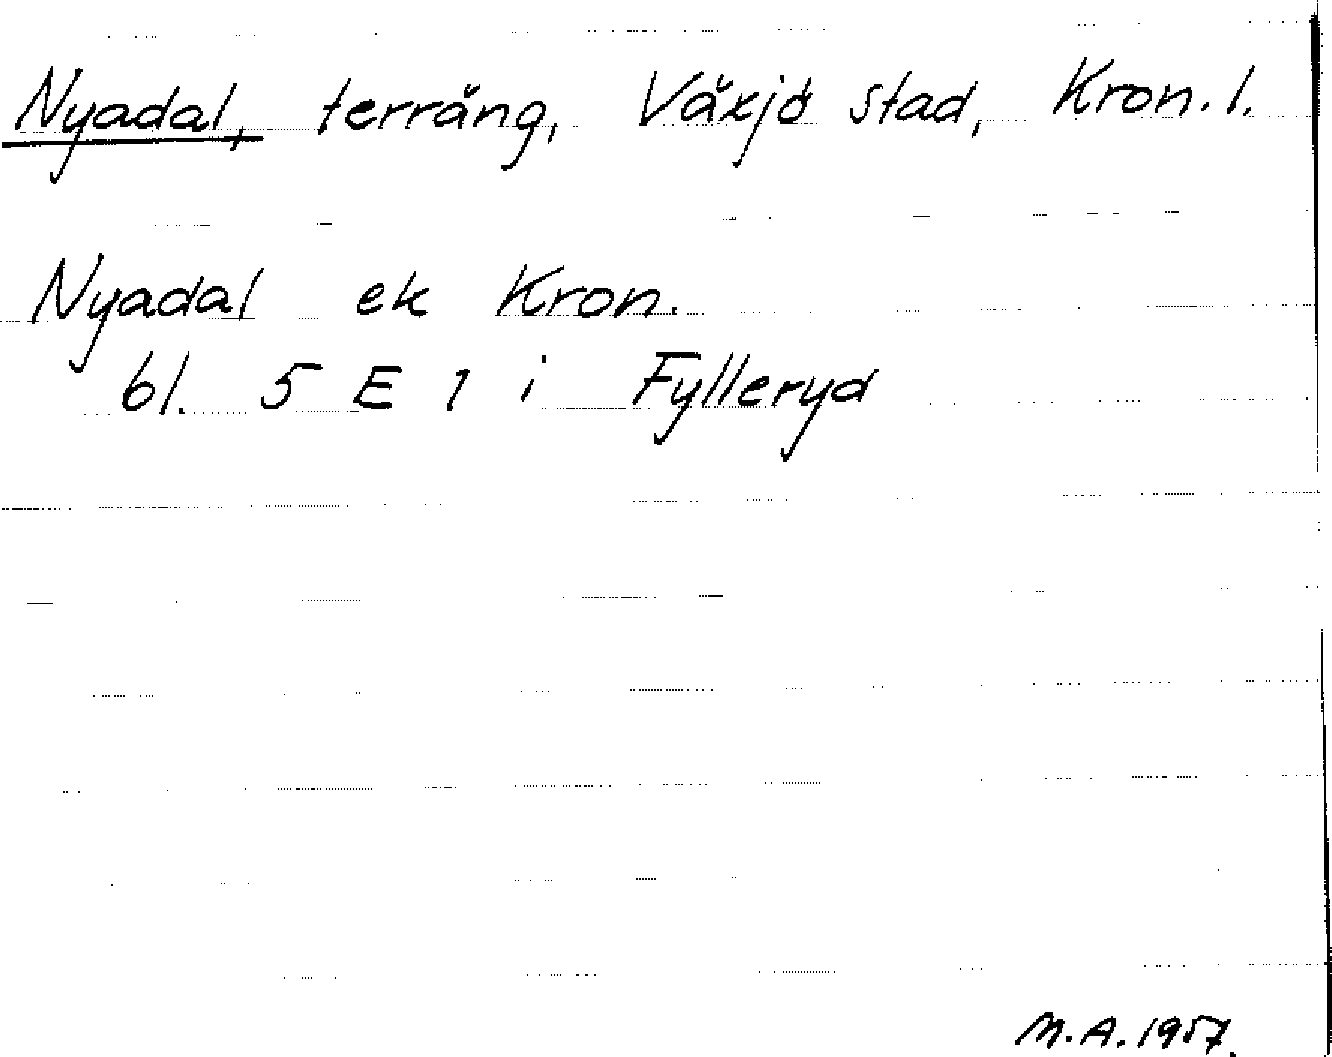 Nyadal, terräng, Växjö stad, Kron. l.
Nyadal ek Kron.
bl. 5 E 1 i Fylleryd
M.A. 1957.